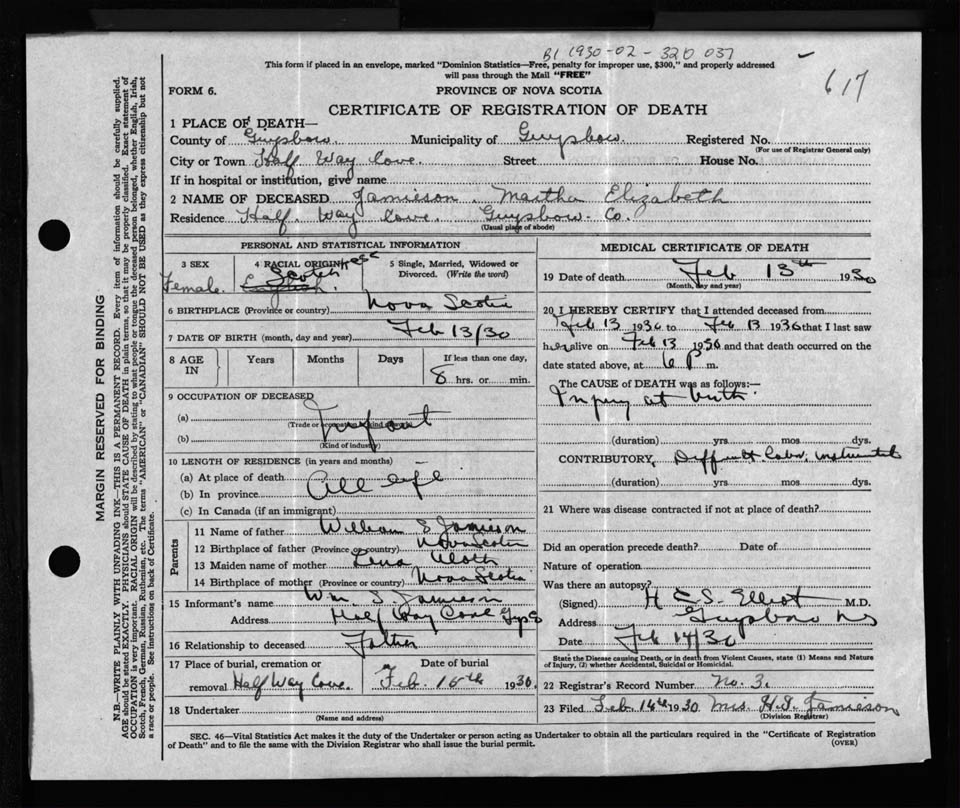 B1 1930-02-320 037
617
This form if placed in an envelope, marked "Dominion Statistics—Free, penalty for improper use, $300," and properly addressed
will pass through the Mail "FREE"
FORM 6.
PROVINCE OF NOVA SCOTIA
CERTIFICATE OF REGISTRATION OF DEATH
1 PLACE OF DEATH—
County of Guysboro Municipality of Guysboro. Registered No.
(For use of Registrar General only)
City or Town Half Way Cove. Street House No.
If in hospital or institution, give name
2 NAME OF DECEASED Jamieson. Martha Elizabeth
Residence Half. Way Cove. Guysboro Co.
(Usual place of abode)
PERSONAL AND STATISTICAL INFORMATION
3 SEX
Female.
4 RACIAL ORIGIN
Scotch
English.
5 Single, Married, Widowed or
Divorced. (Write the word)
6 BIRTHPLACE (Province or country) Nova Scotia
7 DATE OF BIRTH (month, day and year) Feb 13/30
8 AGE
IN
Years
Months
Days
If less than one day,
8 hrs. or min.
9 OCCUPATION OF DECEASED
(a)
(Trade or occupation, kind of work)
Infant
(b)
(Kind of industry)
10 LENGTH OF RESIDENCE (in years and months)
(a) At place of death
(b) In province All life
(c) In Canada (if an immigrant)
Parents
11 Name of father William S Jamieson
12 Birthplace of father (Province or country) Nova Scotia
13 Maiden name of mother Lena
14 Birthplace of mother (Province or country) Nova Scotia
15 Informant's name Wm. S Jamieson
Address Half Way Cove
16 Relationship to deceased Father
17 Place of burial, cremation or
removal Half Way Cove.
Date of burial
Feb. 15th 1930.
18 Undertaker
(Name and address)
MEDICAL CERTIFICATE OF DEATH
19 Date of death Feb 13th 1930
(Month, day and year)
20 I HEREBY CERTIFY that I attended deceased from
Feb 13 1930 to Feb 13 1930 that I last saw
her alive on Feb 13 1930 and that death occurred on the
date stated above, at 6 P m.
The CAUSE of DEATH was as follows:—
Injury at birth.
(duration) yrs mos dys.
CONTRIBUTORY, Difficult labor. instrumental
(duration) yrs mos dys.
21 Where was disease contracted if not at place of death?
Did an operation precede death? Date of
Nature of operation
Was there an autopsy?
(Signed) H E S. Elliot M.D.
Address Guysboro NS
Date Feb 14/30
State the Disease causing Death, or in death from Violent Causes, state (1) Means and Nature
of Injury, (2) whether Accidental, Suicidal or Homicidal.
22 Registrar's Record Number No. 3.
23 Filed Feb. 14th 1930 Mrs. H.S. Jamieson
(Division Registrar)
SEC. 46—Vital Statistics Act makes it the duty of the Undertaker or person acting as Undertaker to obtain all the particulars required in the "Certificate of Registration
of Death" and to file the same with the Division Registrar who shall issue the burial permit.
(OVER)
MARGIN RESERVED FOR BINDING
N.B.—WRITE PLAINLY WITH UNFADING INK—THIS IS A PERMANENT RECORD. Every item of information should be carefully supplied.
AGE should be stated EXACTLY. PHYSICIANS should STATE CAUSE OF DEATH in plain terms, so that it may be properly classified. Exact statement of
OCCUPATION is very important. RACIAL ORIGIN will be described by stating to what people or tongue the deceased person belonged, whether English, Irish,
Scotch, French, German, Russian, Ruthenian, etc. The terms "AMERICAN" or "CANADIAN" SHOULD NOT BE USED as they express citizenship but not
a race or people. See instructions on back of Certificate.